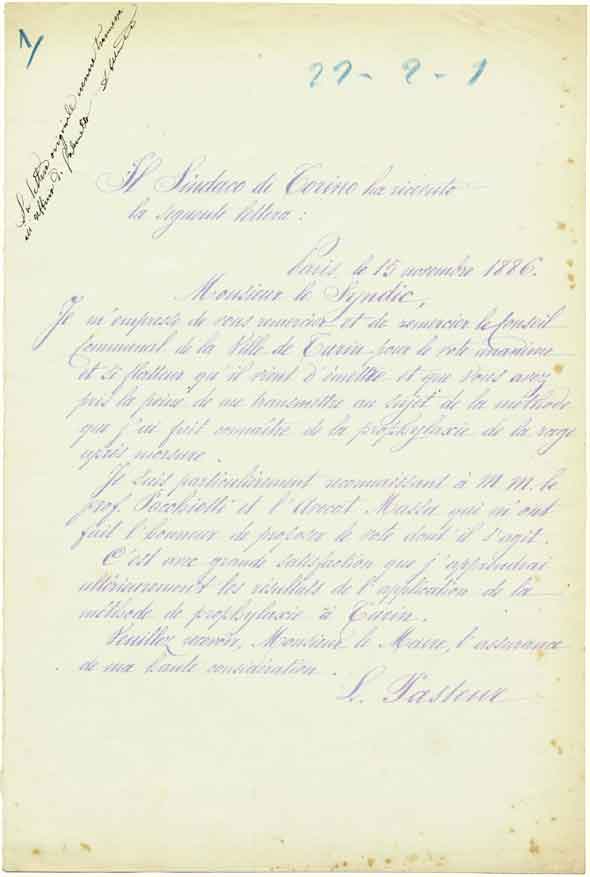 1/
22 - 2 - 1
La lettera originale venne trasmessa
Il Sindaco di Torino ha ricevuto
la seguente lettera :
Paris, le 15 novembre 1886.
Monsieur le Syndic,
Je m'empresse de vous remercier et de remercier le Conseil
Communal de la Ville de Turin pour le vote unanime
et si flatteur qu'il vient d'émettre et que vous avez
pris la peine de me transmettre au sujet de la méthode
que j'ai fait connaître de la prophylaxie de la rage
après morsure.
Je suis particulièrement reconnaissant à M. M. le
prof. Pacchiotti et l'Avocat qui m'ont
fait l'honneur de proposer le vote dont il s'agit.
C'est avec grande satisfaction que j'apprendrai
ultérieurement les résultats de l'application de la
méthode de prophylaxie à Turin.
Veuillez recevoir, Monsieur le Maire, l'assurance
de ma haute considération.
L. Pasteur